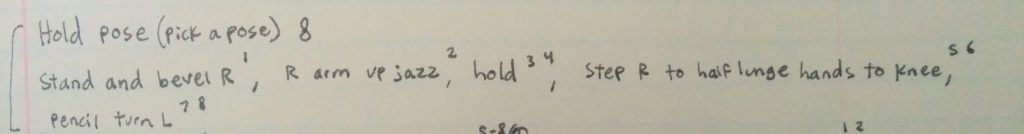 Hold pose (pick a pose) 8
Stand and bevel R 1, R arm up jazz 2, hold 3 4, Step R to half lunge hands to knee, 5 6
pencil turn L 7 8
1 2